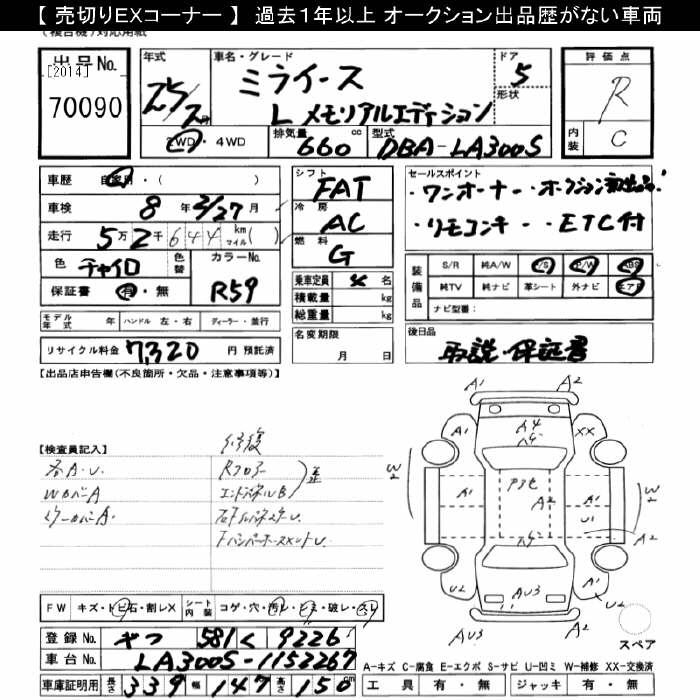 【 売切りEXコーナー 】 過去1年以上 オークション出品歴がない車両
(複合機)対応用紙
出品No.
[2014]
70090
年式
25/2月
車名・グレード
ミライース
L メモリアルエディション
ドア
5
形状
評価点
R
内装
C
2WD・4WD
排気量
660 cc
型式
DBA-LA300S
車歴 自家用・( )
車検 8年 2/27月
走行 5万2千644 km マイル( )
色 チャイロ
色替
カラーNo.
R59
保証書 有・無
シフト
FAT
冷房
AC
燃料
G
乗車定員 4名
積載量 kg
総重量 kg
名変期限
月 日
セールスポイント
・ワンオーナー ・オークション初出品!
・リモコンキー ・ETC付
装備品
S/R 純A/W P/S P/W ABS
純TV 純ナビ 革シート 外ナビ エアB
ナビ型番:
モデル年式 年 ハンドル 左・右 ディーラー・並行
リサイクル料金 7,320 円 預託済
後日品
取説・保証書
【出品店申告欄(不良箇所・欠品・注意事項等)】
【検査員記入】
修復
各A.U
Rフロアー
WカバーA
エンドパネルB
歪
FバンパーホースメントU
A1 A2
A1 A4 XX
A2
W2
A1 A2 A1
U1
W2
A2
U2 A1
AU3 U2
AU3
スペア
FW キズ・トビ石・割レX シート内装 コゲ・穴・汚レ・シミ・破レ・スレ
登録No. ギフ 581 く 9226
車台No. LA300S-1152267
車庫証明用 長さ 339 幅 147 高さ 150 cm
A-キズ C-腐食 E-エクボ S-サビ U-凹ミ W-補修 XX-交換済
工具 有・無 ジャッキ 有・無